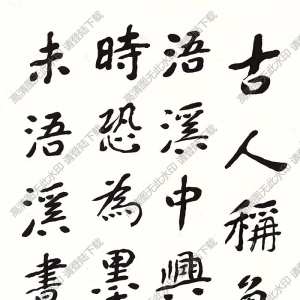 古人稱魯
浯溪中興
時恐為墨
未浯溪書
高清图无此水印 请登陆下载